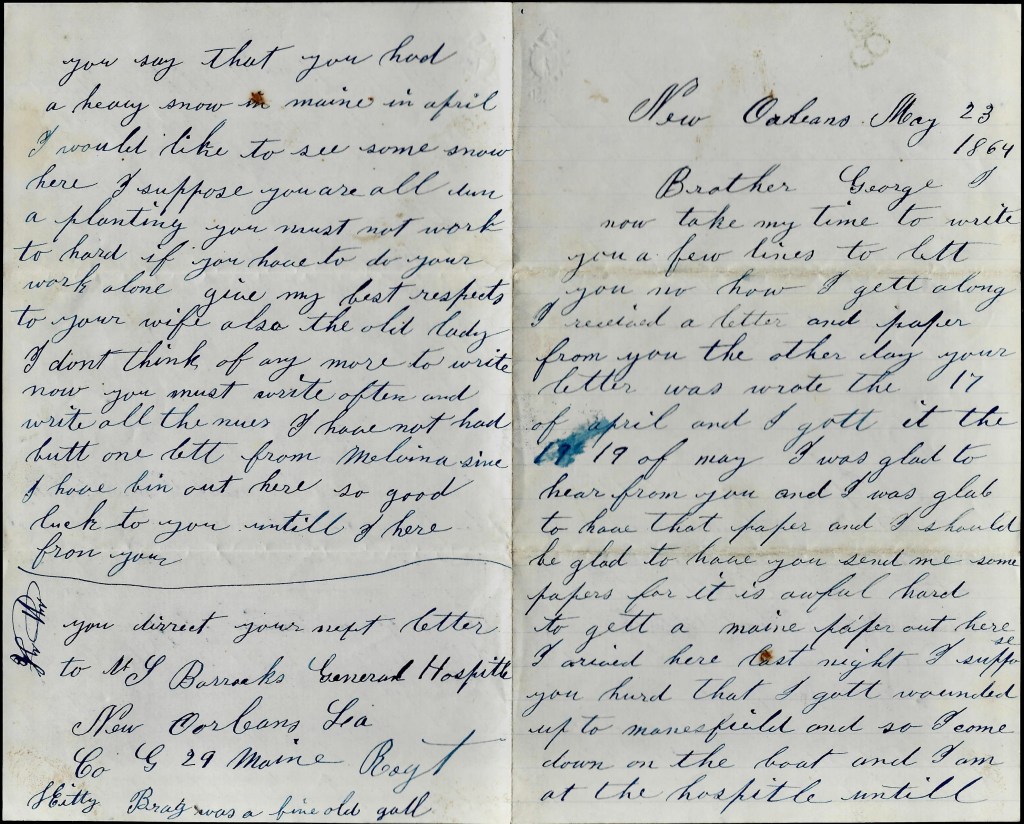 New Orleans May 23
1864
Brother George I
now take my time to write
you a few lines to lett
you no how I gett along
I recieved a letter and paper
from you the other day your
letter was wrote the 17
of april and I gott it the
19 of may I was glad to
hear from you and I was glab
to have that paper and I should
be glad to have you send me some
papers for it is awful hard
to gett a maine paper out here
I arived here last night I suppose
you hurd that I gott wounded
up to manesfield and so I come
down on the boat and I am
at the hospitle untill
you say that you had
a heavy snow in maine in april
I would like to see some snow
here I suppose you are all dun
a planting you must not work
to hard if you have to do your
work alone give my best respects
to your wife also the old lady
I dont think of any more to write
now you must write often and
write all the nues I have not had
butt one lett from Melvina sine
I have bin out here so good
luck to you untill I here
fron you
you dirrect your next letter
to U S Barracks General Hospitle
New Oorleans Lia
Co G 29 Maine Regt
Hitty was a fine old gall